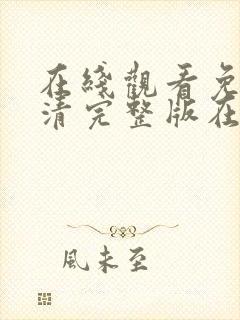 在綫觀看免
清完整版在
風未至